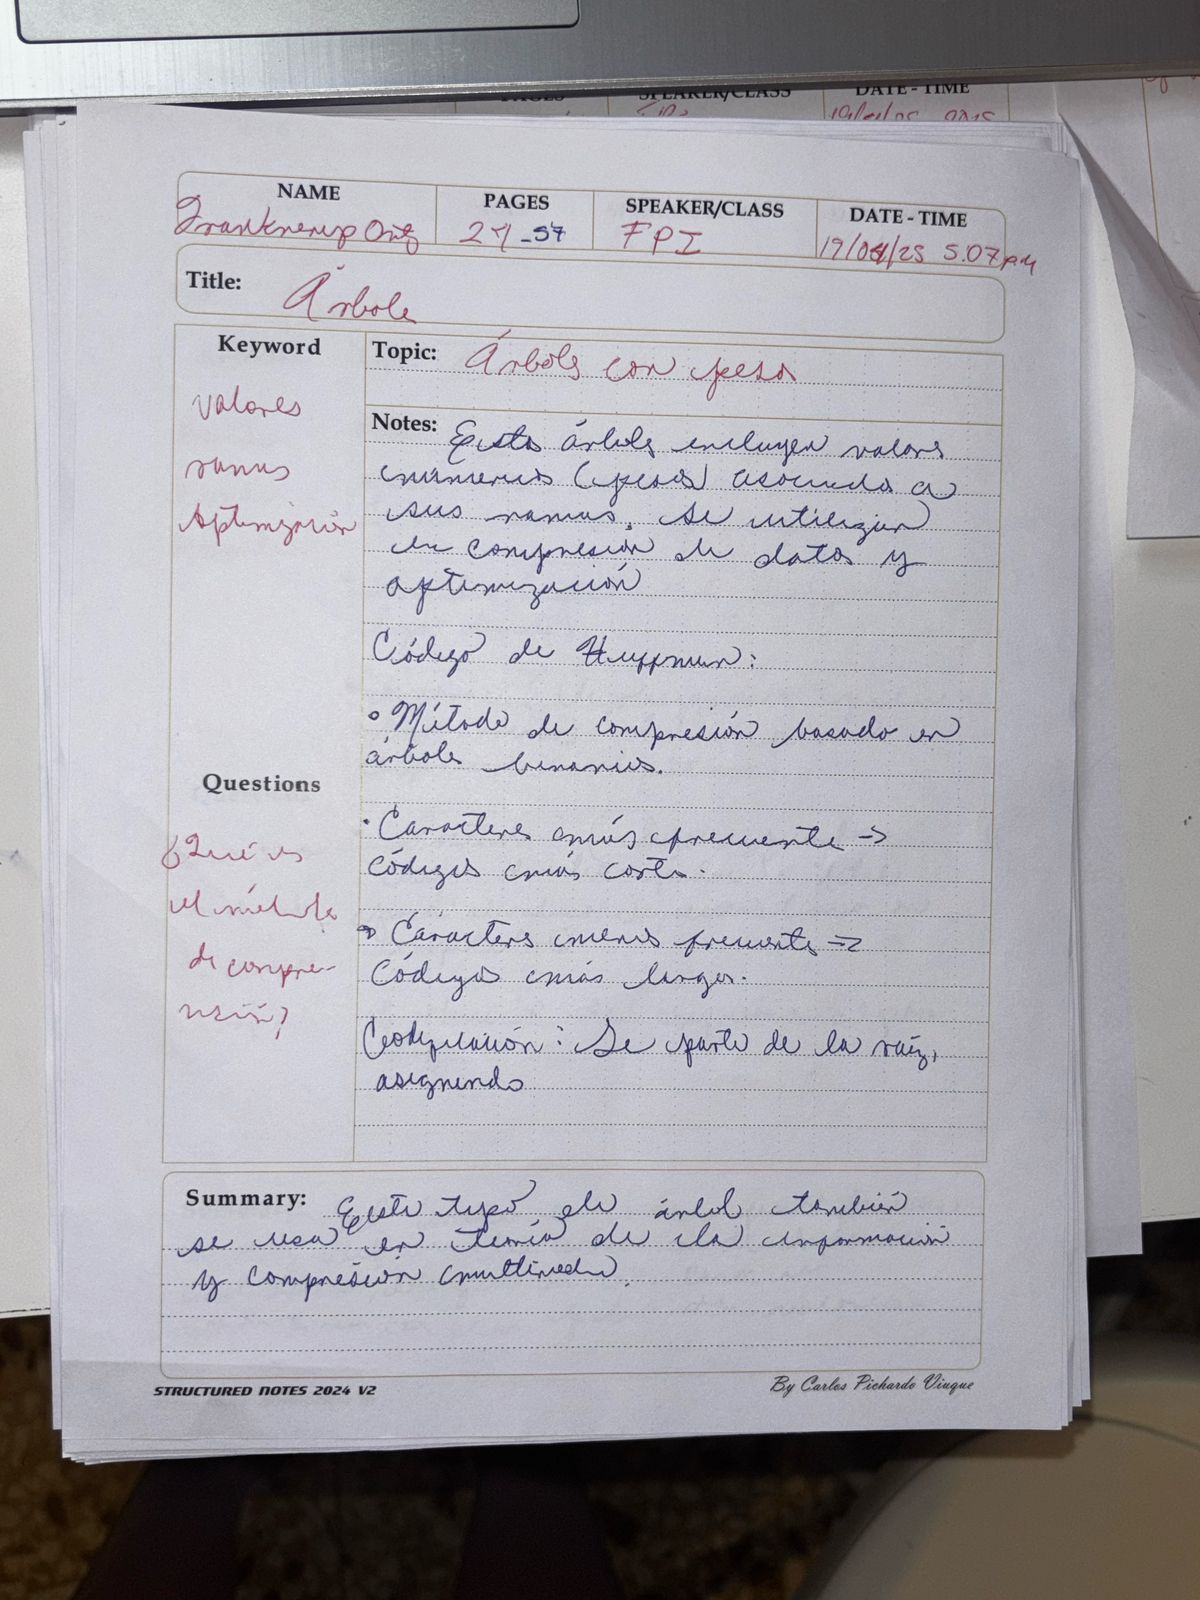 PAGES SPEAKER/CLASS DATE - TIME
NAME PAGES SPEAKER/CLASS DATE - TIME
24-57 FPI 19/04/25 5:07 PM
Title: Árbole
Keyword
Topic: Árboles con peso
valores
ramas
Optimización
Notes: Estos árboles incluyen valores
númericos (pesos) asociado a
sus ramas. Se utilizan
en compresión de datos y
optimización
Código de Huffman:
• Método de compresión basado en
árboles binarios.
• Caracteres más frecuente ->
códigos más corto.
• Caracteres menos frecuente ->
Códigos más largos.
Codificación: Se parte de la raíz,
asignando
Questions
¿Qué es
el método
de compre-
sión?
Summary: Este tipo de árbol también
se usa en teoría de la información
y compresión multimedia.
STRUCTURED NOTES 2024 V2
By Carlos Pichardo Viuque